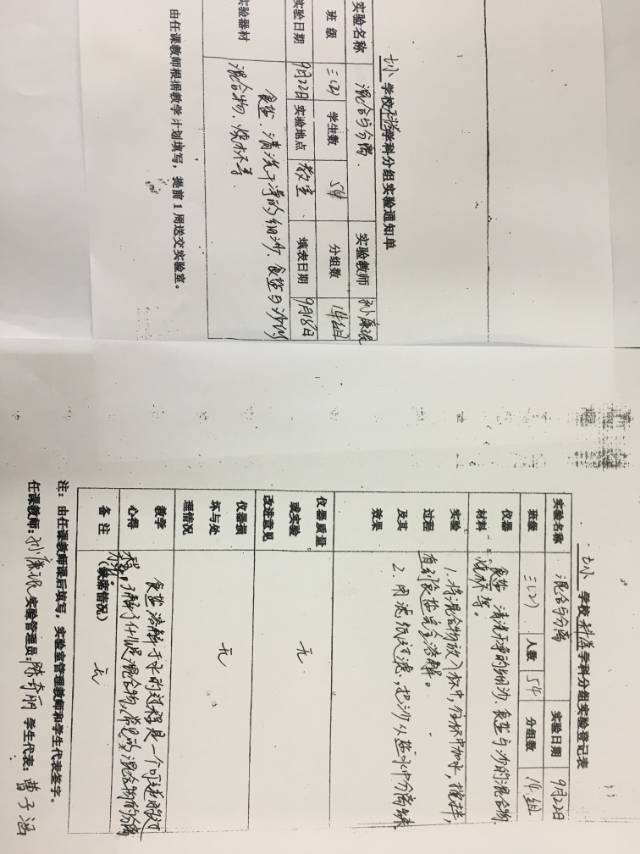 七小 学校科学学科分组实验通知单
实验名称 混合与分离 实验教师 孙廉珉
班级 三(2) 学生数 54 分组数 14组
实验日期 9月22日 实验地点 教室 填表日期 9月18日
实验器材 食盐、清洗干净的细沙、食盐与沙的
混合物、烧杯等.
由任课教师根据教学计划填写，提前1周送交实验室。
七小 学校科学学科分组实验登记表
实验名称 混合与分离 实验日期 9月22日
班级 三(2) 人数 54 分组数 14组
仪器材料 食盐、清洗干净的细沙、食盐与沙的混合物
烧杯等。
实验过程及其效果 1、将混合物放入杯中，往杯中加水，搅拌，
直到食盐完全溶解。
2、用滤纸过滤，把沙从盐水中分离出来
仪器质量或实验改进意见 无
仪器损坏与处理情况 无
教学心得 食盐溶解于水的过程是一个可逆的过
程。了解了什么是混合物、常见的混合物的分离
方法。
备注 (缺席情况) 无
注：由任课教师课后填写，实验室管理教师和学生代表签字。
任课教师：孙廉珉 实验管理员：陈奇朋 学生代表：曹子涵